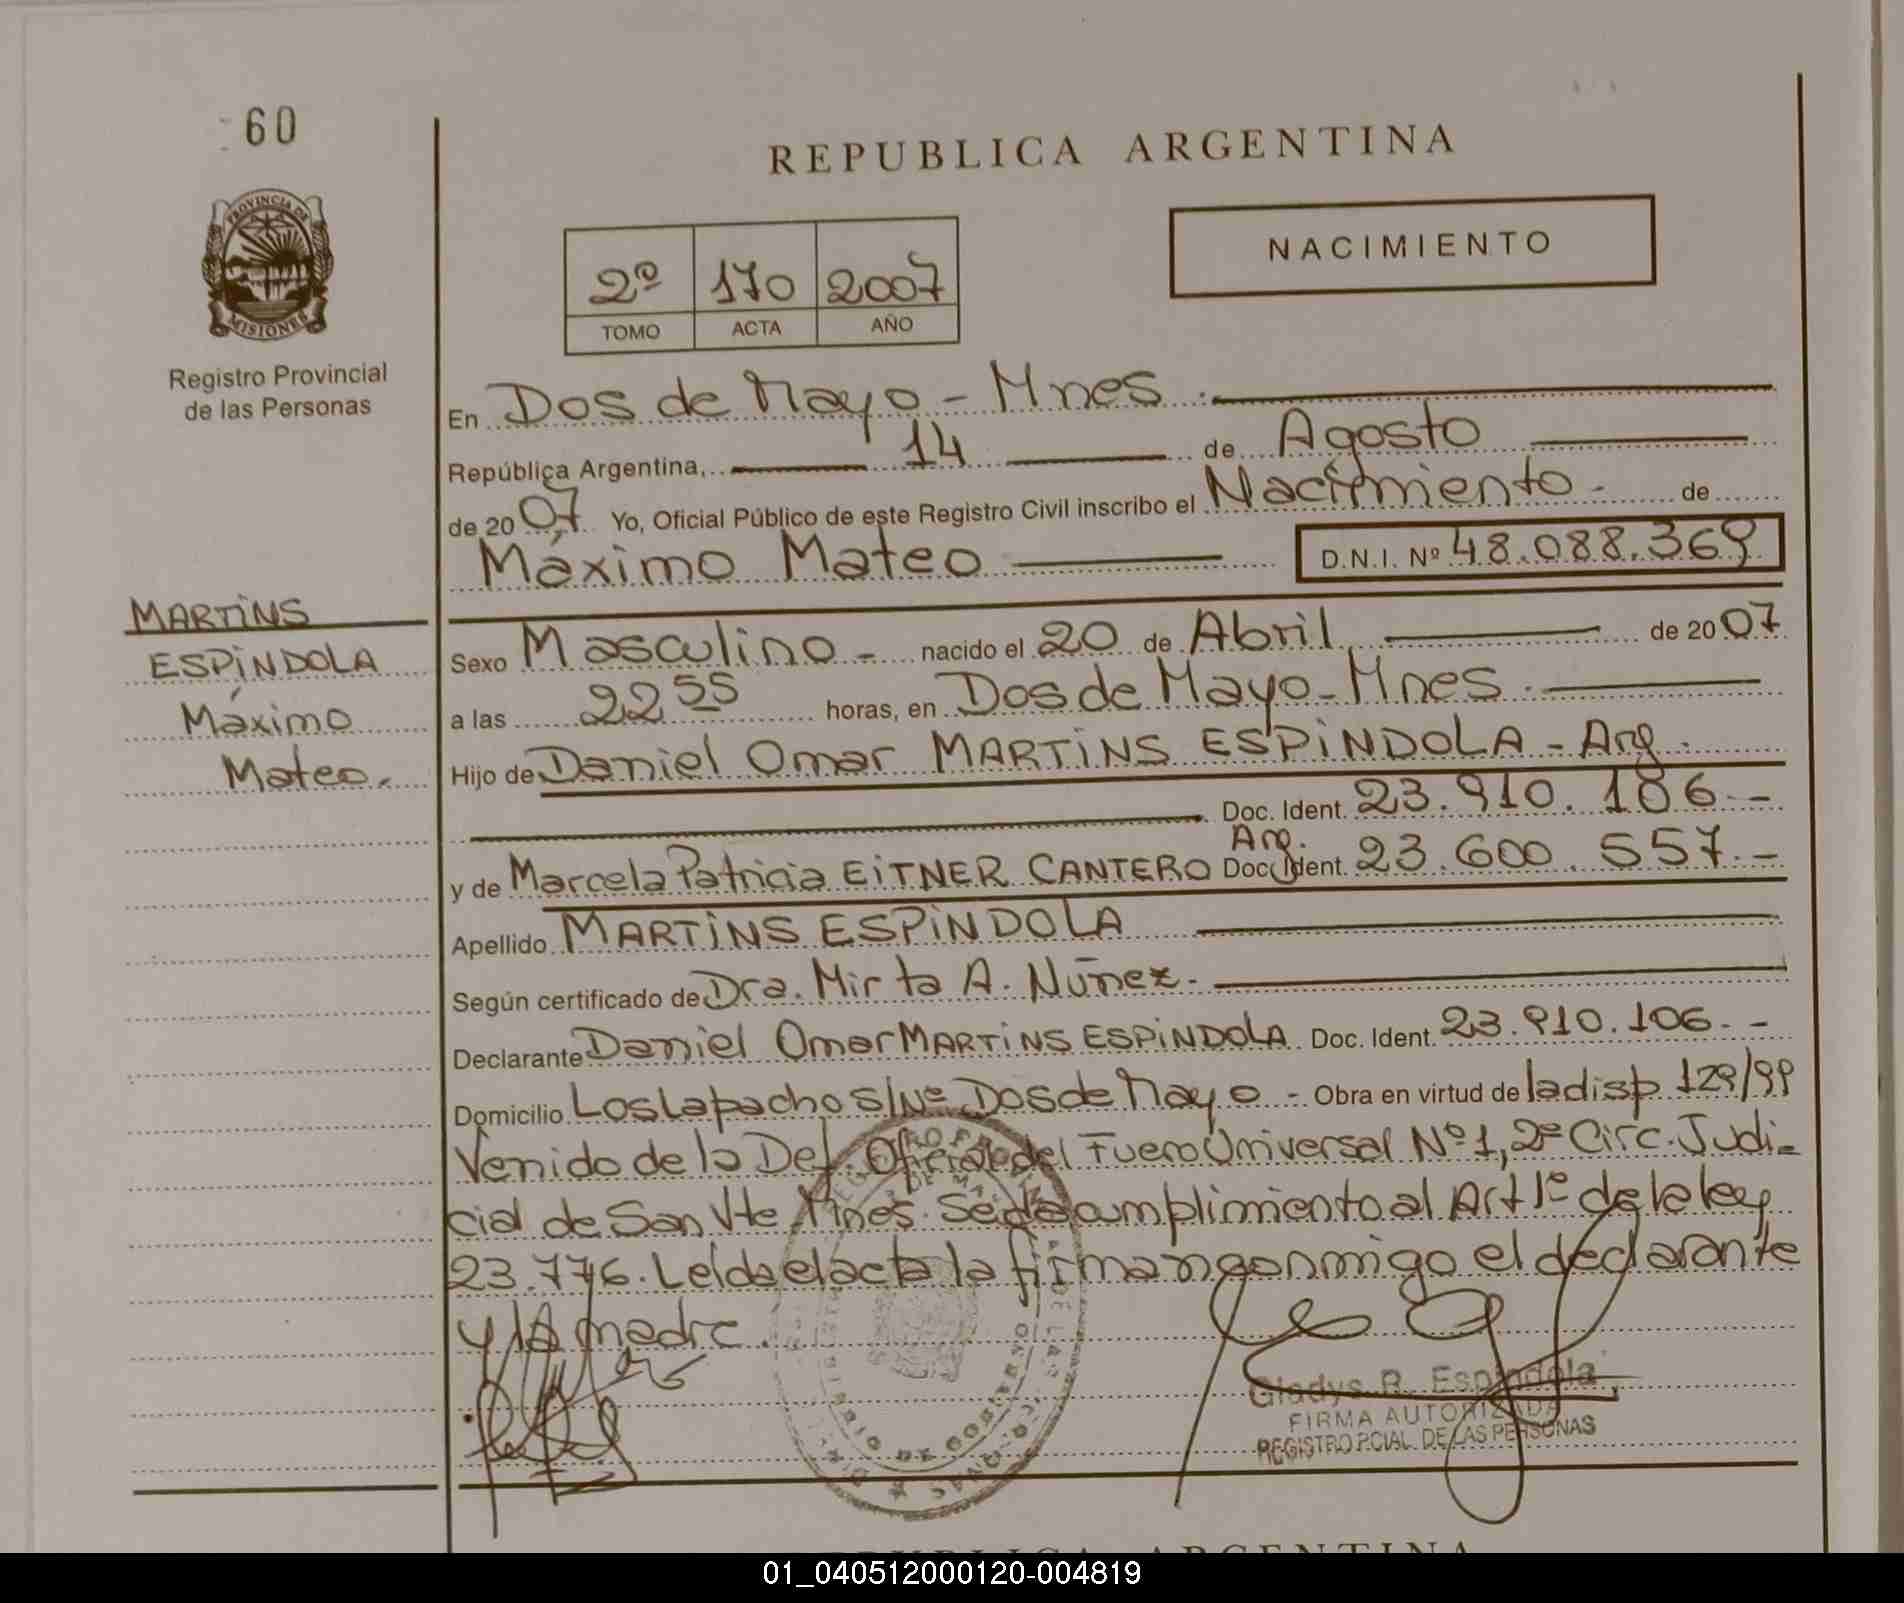 60
REPUBLICA ARGENTINA
PROVINCIA DE
MISIONES
Registro Provincial
de las Personas
2º 170 2007
TOMO ACTA AÑO
NACIMIENTO
En Dos de Mayo - Mnes.
República Argentina, 14 de Agosto
de 2007 Yo, Oficial Público de este Registro Civil inscribo el Nacimiento - de
Máximo Mateo D.N.I. Nº 48.088.369
MARTiNS
ESPiNDOLA
Máximo
Mateo.
Sexo Masculino - nacido el 20 de Abril de 2007
a las 22 55 horas, en Dos de Mayo - Mnes.
Hijo de Daniel Omar MARTiNS ESPiNDOLA - Arg.
Doc. Ident. 23.910.106 -
Arg.
y de Marcela Patricia EiTNER CANTERO Doc. Ident. 23.600.557. -
Apellido MARTiNS ESPiNDOLA
Según certificado de Dra. Mirta A. Núñez -
Declarante Daniel Omar MARTiNS ESPiNDOLA Doc. Ident. 23.910.106. -
Domicilio Los Lapachos S/Nº Dos de Mayo - Obra en virtud de la disp 129/99
Venido de la Def. Oficial del Fuero Universal Nº 1, 2º Circ. Judi-
cial de San Vte Mnes. Se da cumplimiento al Art 1º de la ley
23.776. Leída el acta la firman conmigo el declarante
y la madre.
Gladys R. Espíndola
FIRMA AUTORIZADA
REGISTRO PCIAL. DE LAS PERSONAS
REPUBLICA ARGENTINA
01_040512000120-004819